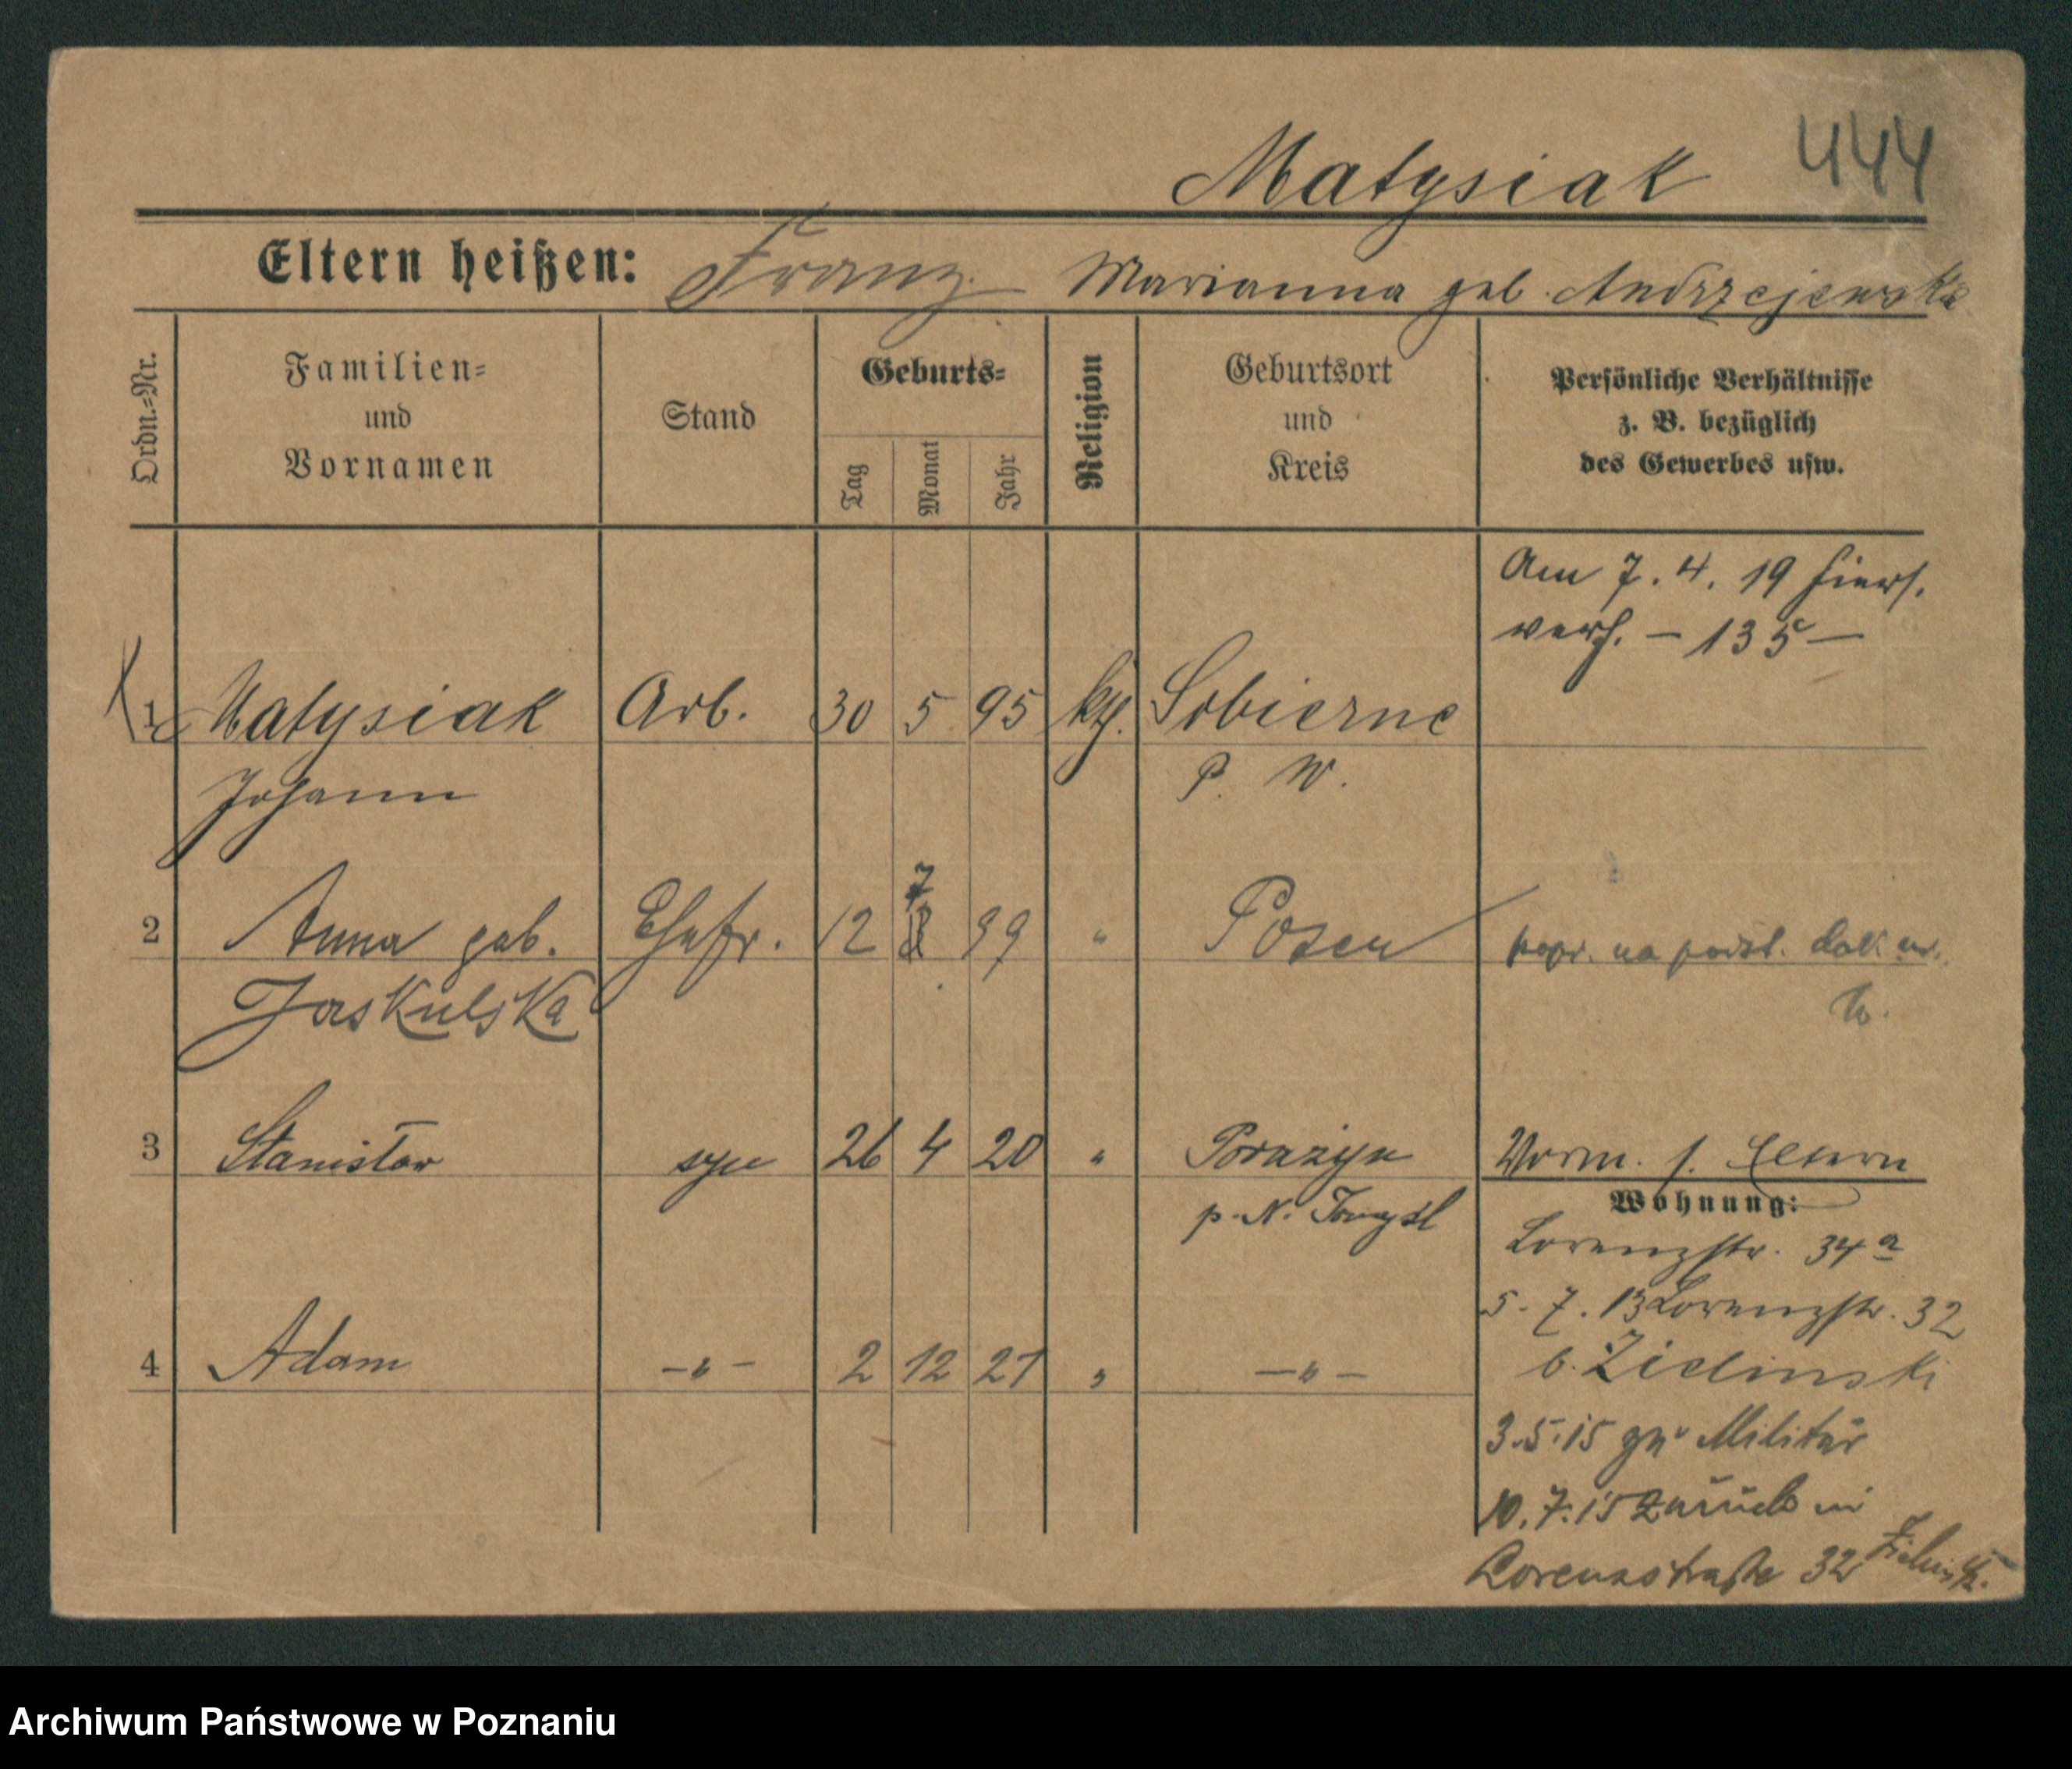 Matysiak 444
Eltern heißen: Franz Marianna geb. Andrzejewska
Ordn.-Nr.
Familien-
und
Vornamen
Stand
Geburts-
Tag
Monat
Jahr
Religion
Geburtsort
und
Kreis
Persönliche Verhältnisse
z. B. bezüglich
des Gewerbes usw.
Am 7. 4. 19 hiers.
verh. – 135 –
1 Matysiak Arb. 30 5 95 kth. Sobierne
Johann P. W.
2 Anna geb. Ehefr. 12 7 99 " Posen
popr. na podst.
Jaskulska
3 Stanisław syn 26 4 20 " Porażyn Vorm. s. Eltern
p. N. Tomysl
Wohnung:
Lorenzstr. 34a
5. 7. 13 Lorenzstr. 32
b. Zielinski
4 Adam –"– 2 12 21 " –"–
3.5.15 zum Militär
10.7.15 Zurück in
Lorenzstraße 32 Zielinski